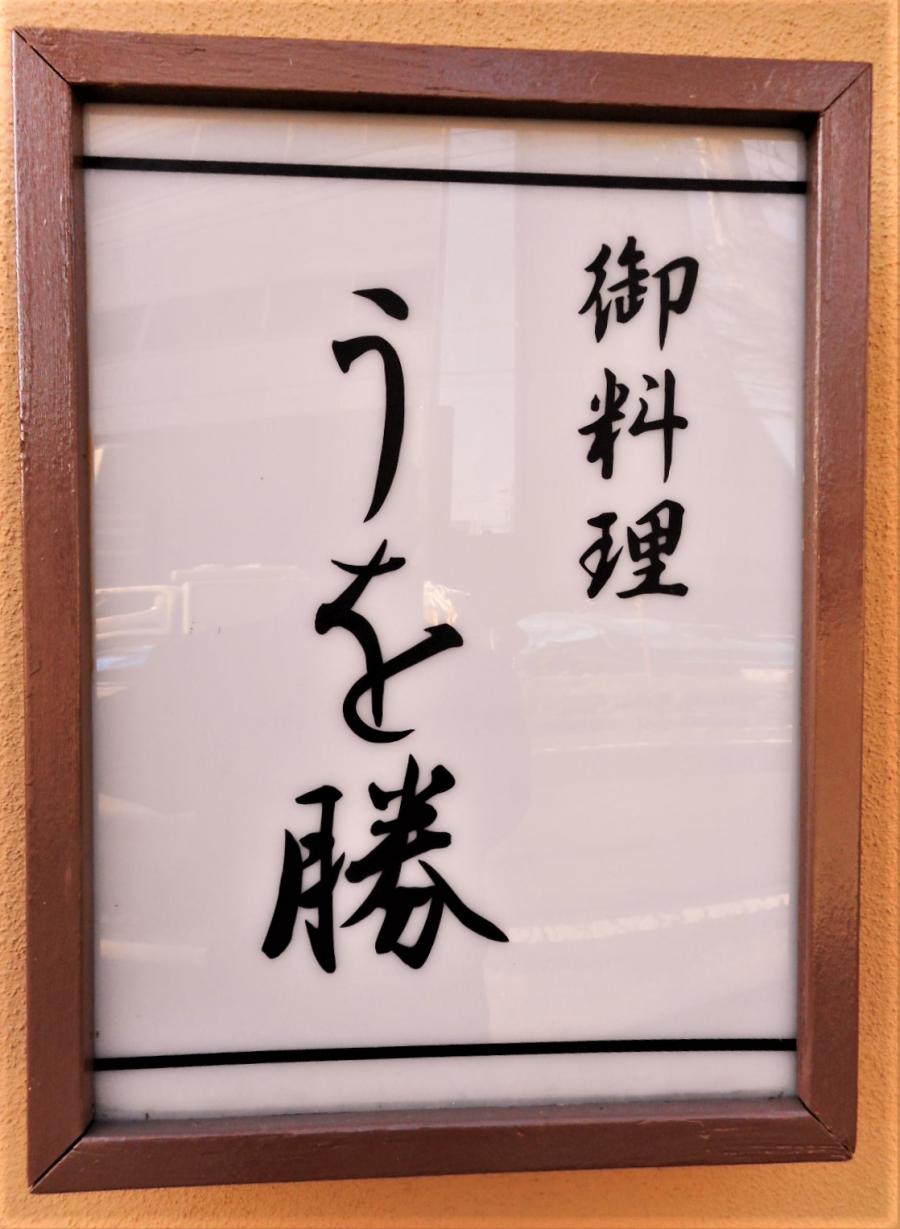 御料理
うを勝